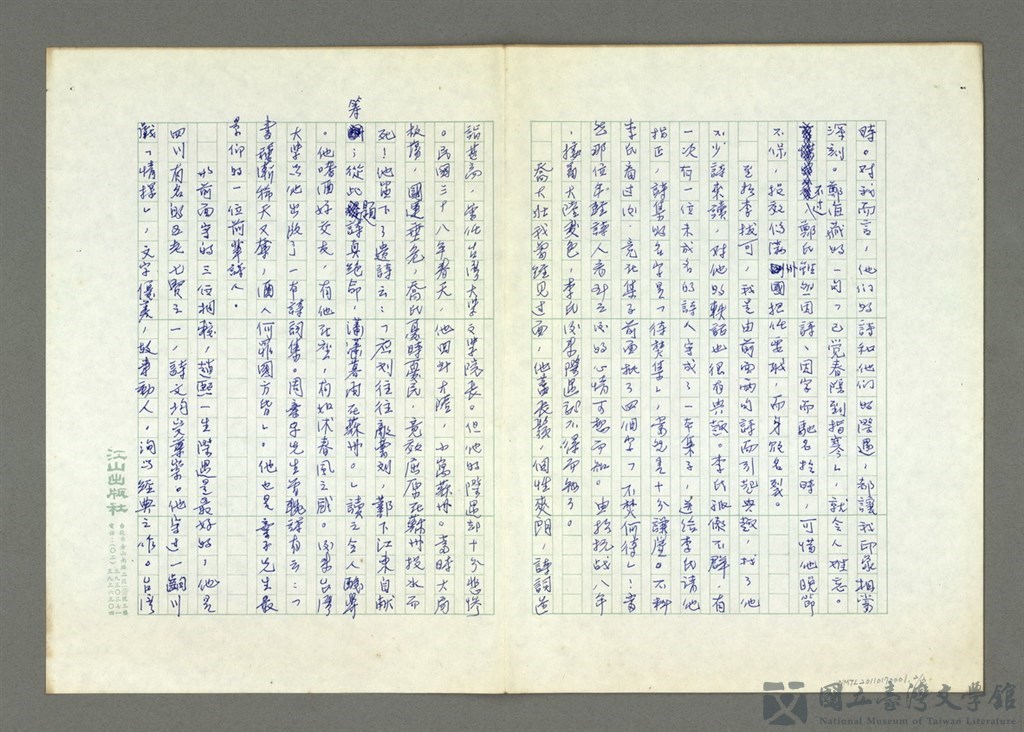 時。對我而言，他們的詩和他們的際遇，都讓我印象相當
深刻。鄭偘藏的一句「已覺春陰到指寒」，就令人難忘。
不過，鄭氏雖因詩、因字而馳名於時，可惜他晚節
不保，投效偽滿洲國担任要職，而身敗名裂。
至於李拔可，我是由前面兩句詩而引起興趣，找了他
不少詩來讀，對他的軼話也很有興趣。李氏孤傲不群，有
一次有一位未成名的詩人寫成了一本集子，送給李氏請他
指正，詩集的名字是「待焚集」，當然是十分謙虛。不料
李氏看過後，竟在集子前面批了四個字「不焚何待」！當
然那位年輕詩人看到之後的心情可想而知。由於抗戰八年
，接着大陸變色，李氏後來際遇就不得而知了。
喬大壯我曾經見過面，他蓄長鬍，個性爽朗，詩詞造
詣甚高，曾任台灣大學文學院長。但他的際遇却十分悲慘
。民國三十八年春天，他回到大陸，寓蘇州。當時大局
板蕩，國運垂危，喬氏憂時憂民，竟效屈原在蘇州投水而
死！他留下了遺詩云：「 江東自獻
籌；從此題詩真絕命，瀟瀟暮雨在蘇州。」讀之令人酸鼻
。他嗜酒好交友，有他在座，有如沐春風之感。後來台灣
大學為他出版了一本詩詞集。周棄子先生曾輓詩有云：「
書種漸稀天又奪，酒人何罪國方皆」。他也是棄子先生最
景仰的一位前輩詩人。
比前面寫的三位相較，趙熙一生際遇是最好的，他是
四川有名的五老七賢之一，詩文均
戲「情探」，文字優美，故事動人，洵為經典之作。台灣
江山出版社
NMTL20110170001
國立臺灣文學館
National Museum of Taiwan Literature